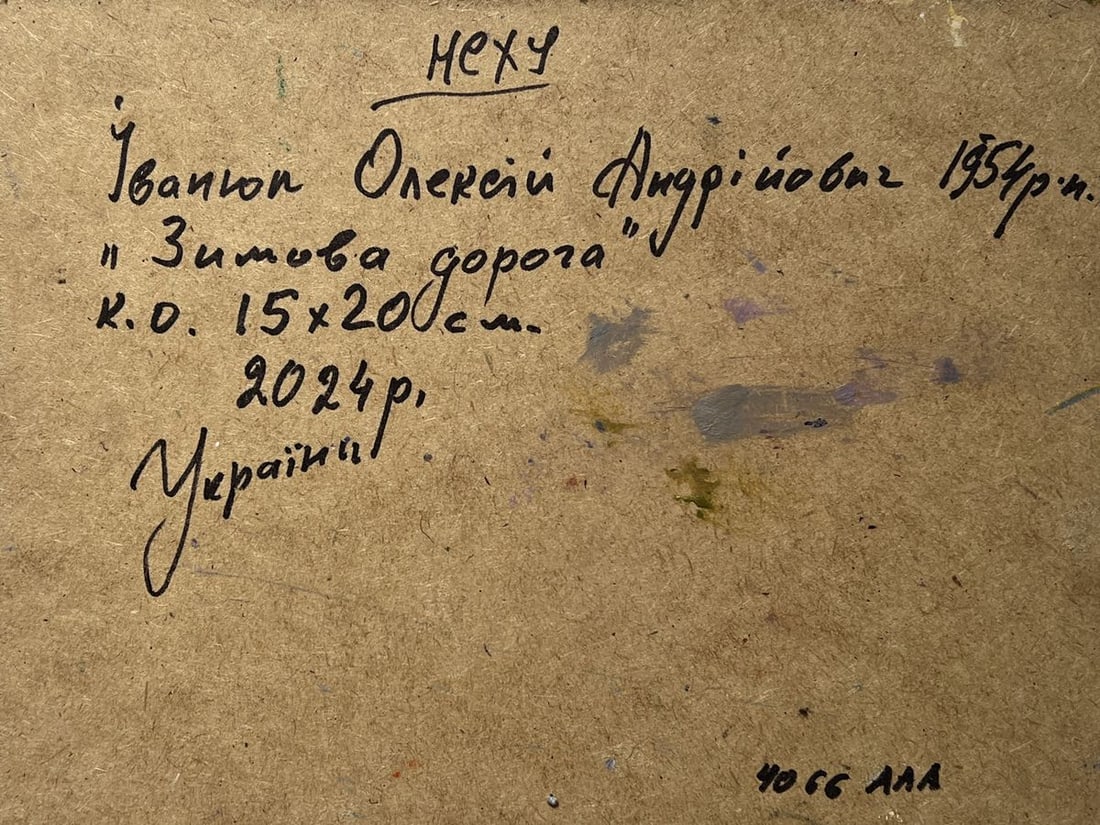 НСХУ
Іванюк Олексій Андрійович 1954р.н.
"Зимова дорога"
к.о. 15х20 см.
2024р.
Україна
4066 ААА